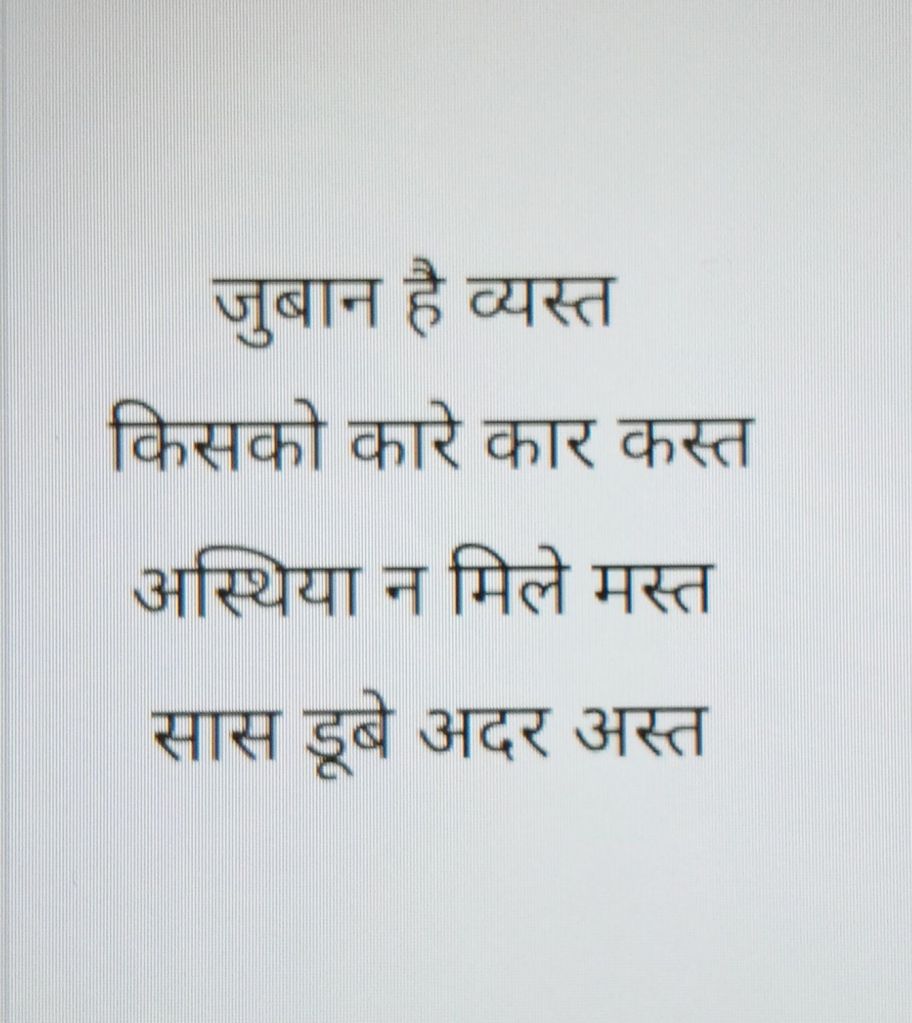 जुबान है व्यस्त
किसको कारे कार कस्त
अस्थिया न मिले मस्त
सास डूबे अदर अस्त